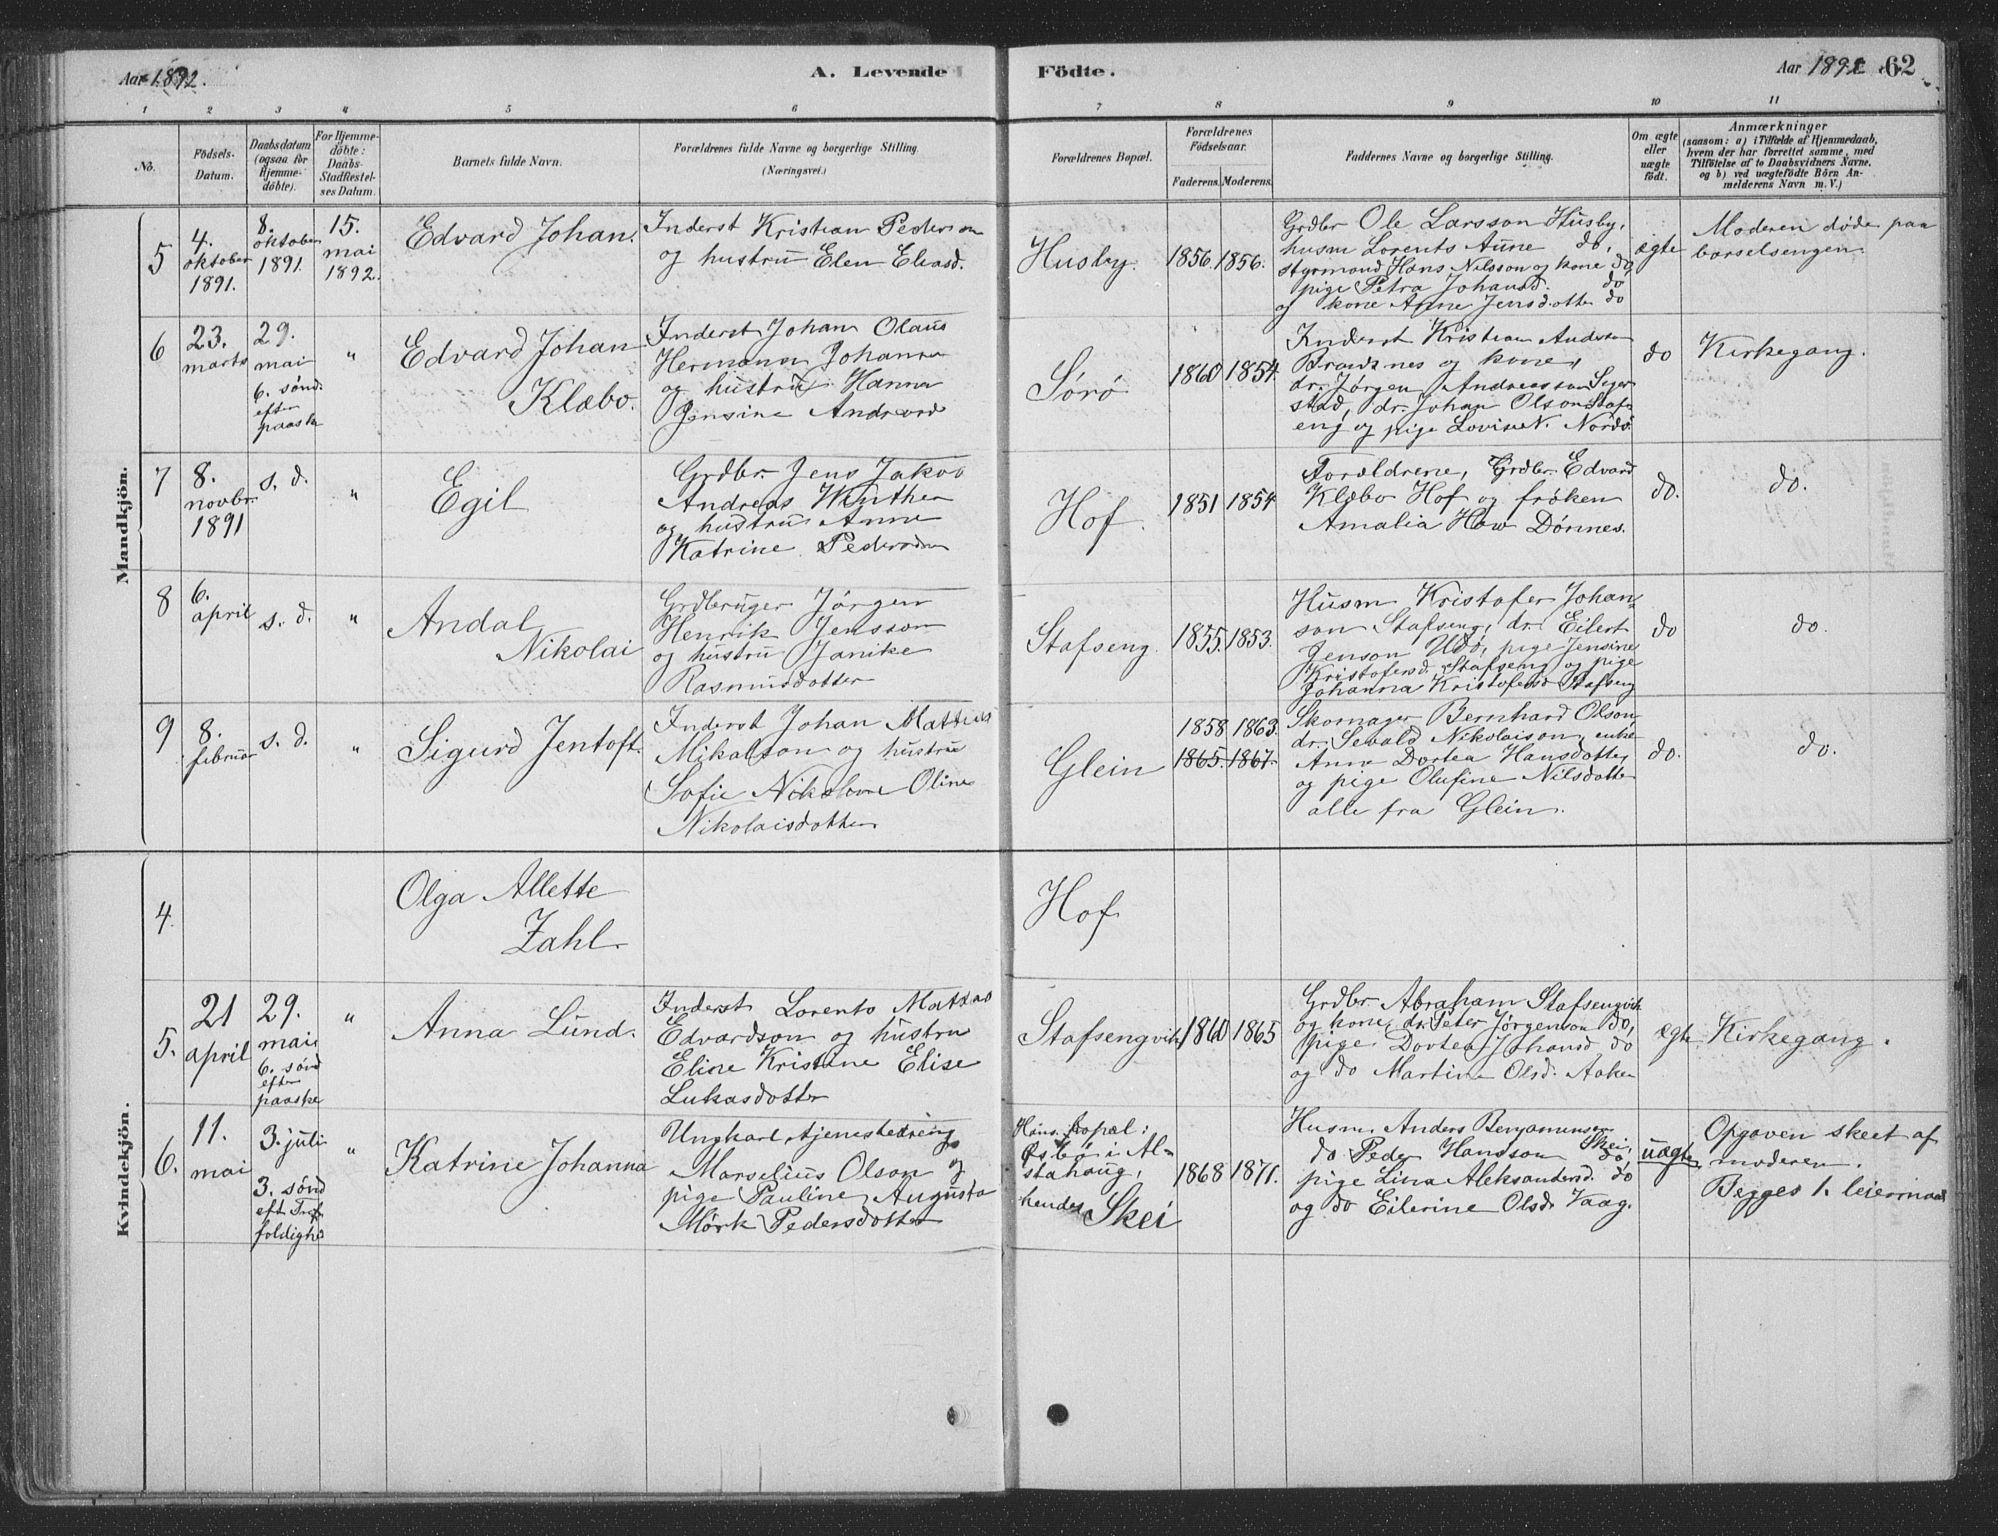 Aar 1892.
A. Levende
Födte.
Aar 1892
62
1 2 3 4 5 6 7 8 9 10 11
No.
Födsels-
Datum.
Daabsdatum
(ogsaa for
Hjemme-
döbte).
For Hjemme-
döbte:
Daabs-
Stadfæstel-
ses Datum.
Barnets fulde Navn.
Forældrenes fulde Navne og borgerlige Stilling.
(Næringsvei.)
Forældrenes Bopæl.
Forældrenes
Födselsaar.
Faderens. Moderens.
Faddernes Navne og borgerlige Stilling.
Om ægte
eller
uægte
födt.
Anmærkninger
(saasom: a) i Tilfælde af Hjemmedaab,
hvem der har forrettet samme, med
Tilföielse af to Daabsvidners Navne,
og b) ved uægtefödte Börn An-
melderens Navn m. V.)
Mandkjön.
5
4.
oktober
1891.
8.
oktober
1891.
15.
mai
1892.
Edvard Johan.
Inderst Kristian Pederson
og hustru Elen Eliasd.
Husby.
1856. 1856.
Grdbr Ole Larsson Husby,
husm Lorents Aune do,
styrmand Hans Nilsson og kone do,
pige Petra Johansd. do
og kone Anne Jensdotter do
ægte
Moderen døde paa
barselsengen.
6
23.
marts
29.
mai
6. sønd.
efter
paaske
"
Edvard Johan
Klæbo.
Inderst Johan Olaus
Hermann Johanson
og hustru Hanna
Jensine Andreasd
Sörö
1860 1854.
Inderst Kristian Anderson
Brandsnes og kone,
dr. Jørgen Andreasson Seger
stad, dr. Johan Olson Stafs
eng og pige Lovise N. Nordö.
do
Kirkegang.
7
8.
novbr.
1891
s. d.
"
Egil
Grdbr. Jens Jakob
Andreas Winther
og hustru Anne
Katrine Pedersdtr
Hof.
1851 1854
Forældrene, Grdbr. Edvard
Klæbo Hof og frøken
Amalia How Dönnes.
do.
do.
8
6.
april
s. d.
"
Andal
Nikolai
Grdbruger Jørgen
Henrik Jensson
og hustru Janike
Rasmusdotter
Stafseng.
1855. 1853.
Husm Kristofer Johan-
son Stafseng, dr. Eilert
Jenson Udö, pige Jensine
Kristofersd. Stafseng og pige
Johanna Kristofersd Stafseng
do
do.
9
8.
februar
s. d.
"
Sigurd Jentoft.
Inderst Johan Mattias
Mikalson og hustru
Sofie Nikoline Oline
Nikolaisdotter
Glein
1858 1863.
1865. 1867.
Skomager Bernhard Olson
dr. Sevald Nikolaison, enke
Anne Dortea Hansdotter
og pige Olufine Nilsdotter
alle fra Glein.
do.
do.
Kvindekjön.
4.
Olga Allette
Zahl
Hof
5.
21
april
29.
mai
6. sønd
efter
paaske
"
Anna Lund.
Inderst Lorents Mattias
Edvardson og hustru
Eline Kristine Elise
Lukasdotter
Stafsengvik
1860 1865
Grdbr Abraham Stafsengvik
og kone, dr. Peter Jørgenson do,
pige Dortea Johansd. do
og do Martine Olsd. Aaker
ægte
Kirkegang.
6.
11.
mai
3. juli
3. sønd
eft Tre
foldighed
"
Katrine Johanna
Ungkarl, tjenestedreng
Marselius Olson og
pige Pauline Augusta
Mörk Pedersdotter
Hans bopæl:
i Al-
stahaug,
hendes Skei
1868 1871.
Husm. Anders Benjaminsen
Skei,
do Peder Hansson do,
pige Lina Aleksandersd. do
og do Eilerine Olsd. Vaag.
uægte
Opgaven skeet af
moderen.
Begges 1. leiermaal